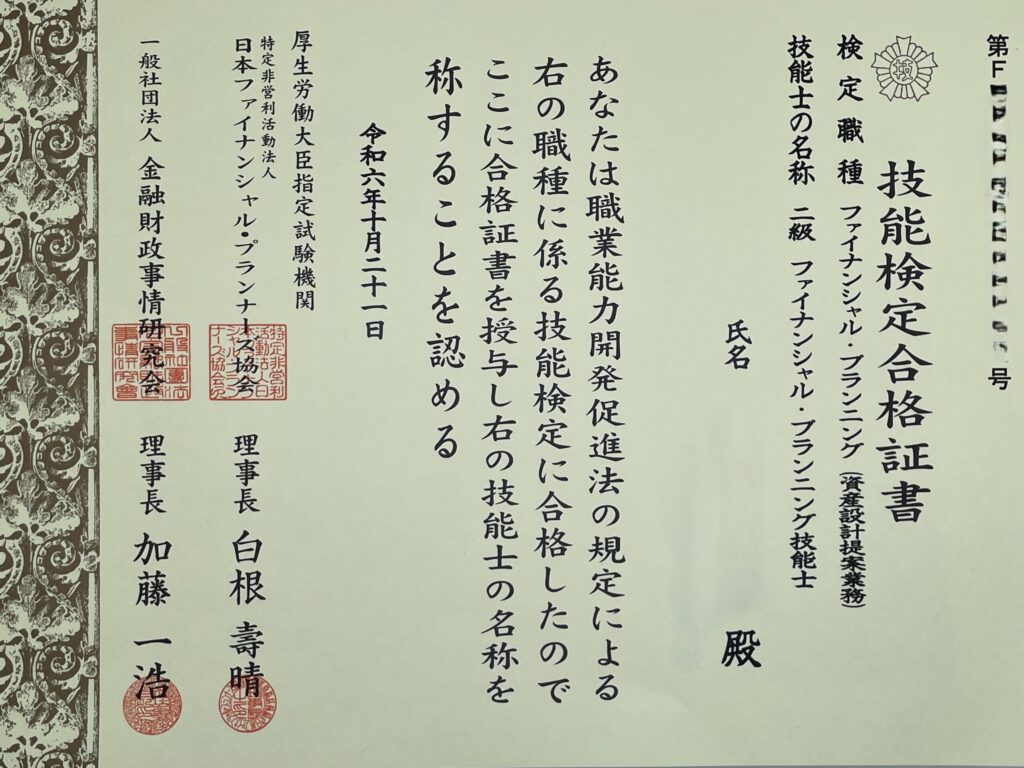 第F号
技
技能検定合格証書
検定職種 ファイナンシャル・プランニング(資産設計提案業務)
技能士の名称 二級 ファイナンシャル・プランニング技能士
氏名
殿
あなたは職業能力開発促進法の規定による
右の職種に係る技能検定に合格したので
ここに合格証書を授与し右の技能士の名称を
称することを認める
令和六年十月二十一日
厚生労働大臣指定試験機関
特定非営利活動法人
日本ファイナンシャル・プランナーズ協会 理事長 白根 壽晴
一般社団法人 金融財政事情研究会 理事長 加藤 一浩